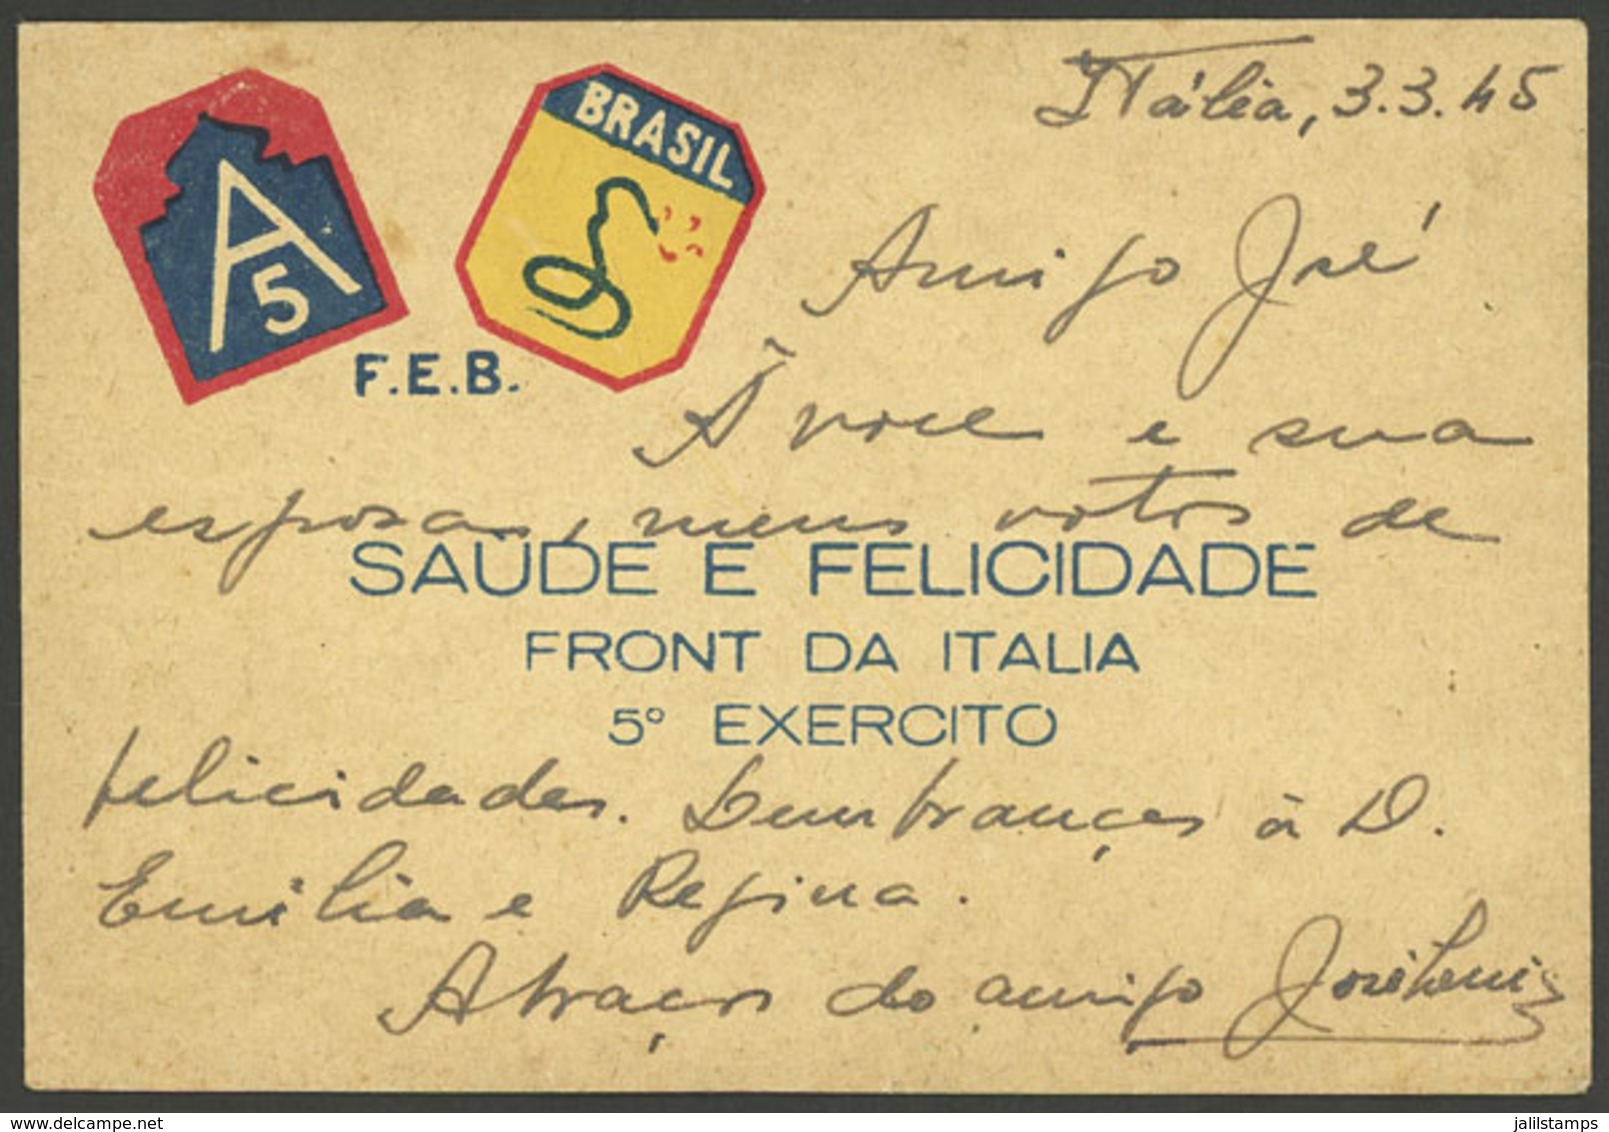 Itália, 3.3.45
A 5
BRASIL
F.E.B.
Amigo José
À voce e sua
esposa, meus votos de
SAÚDE E FELICIDADE
FRONT DA ITALIA
5º EXERCITO
felicidades. Lembranças à D.
Emilia e Regina.
Abraços do amigo José Luiz
jalilstamps